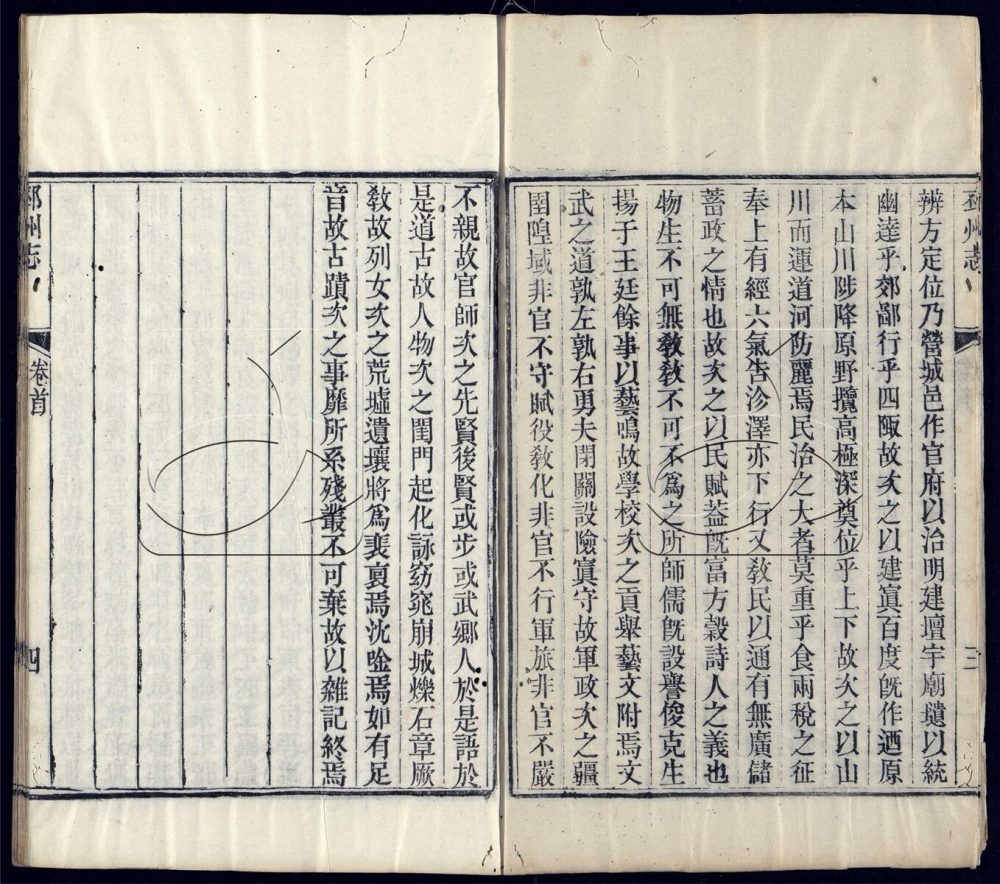 邳州志
三
辨方定位乃營城邑作官府以治明建壇宇廟壝以統
幽達乎郊鄙行乎四陬故次之以建寘百度旣作迺原
本山川陟降原野攬高極深奠位乎上下故次之以山
川而運道河防麗焉民治之大者莫重乎食兩稅之征
奉上有經六氣告沴澤亦下行又敎民以通有無廣儲
蓄政之情也故次之以民賦蓋旣富方榖詩人之義也
物生不可無敎敎不可不爲之所師儒旣設譽俊克生
揚于王廷餘事以藝鳴故學校次之貢舉藝文附焉文
武之道孰左孰右勇夫閉關設險寘守故軍政次之疆
圉隍域非官不守賦役敎化非官不行軍旅非官不嚴
不親故官師次之先賢後賢或步或武鄉人於是語於
是道古故人物次之閨門起化詠窈窕崩城爍石章厥
敎故列女次之荒墟遺壤將爲裴裒焉沈唫焉如有足
音故古蹟次之事靡所系殘叢不可棄故以雜記終焉
邳州志
卷首
四